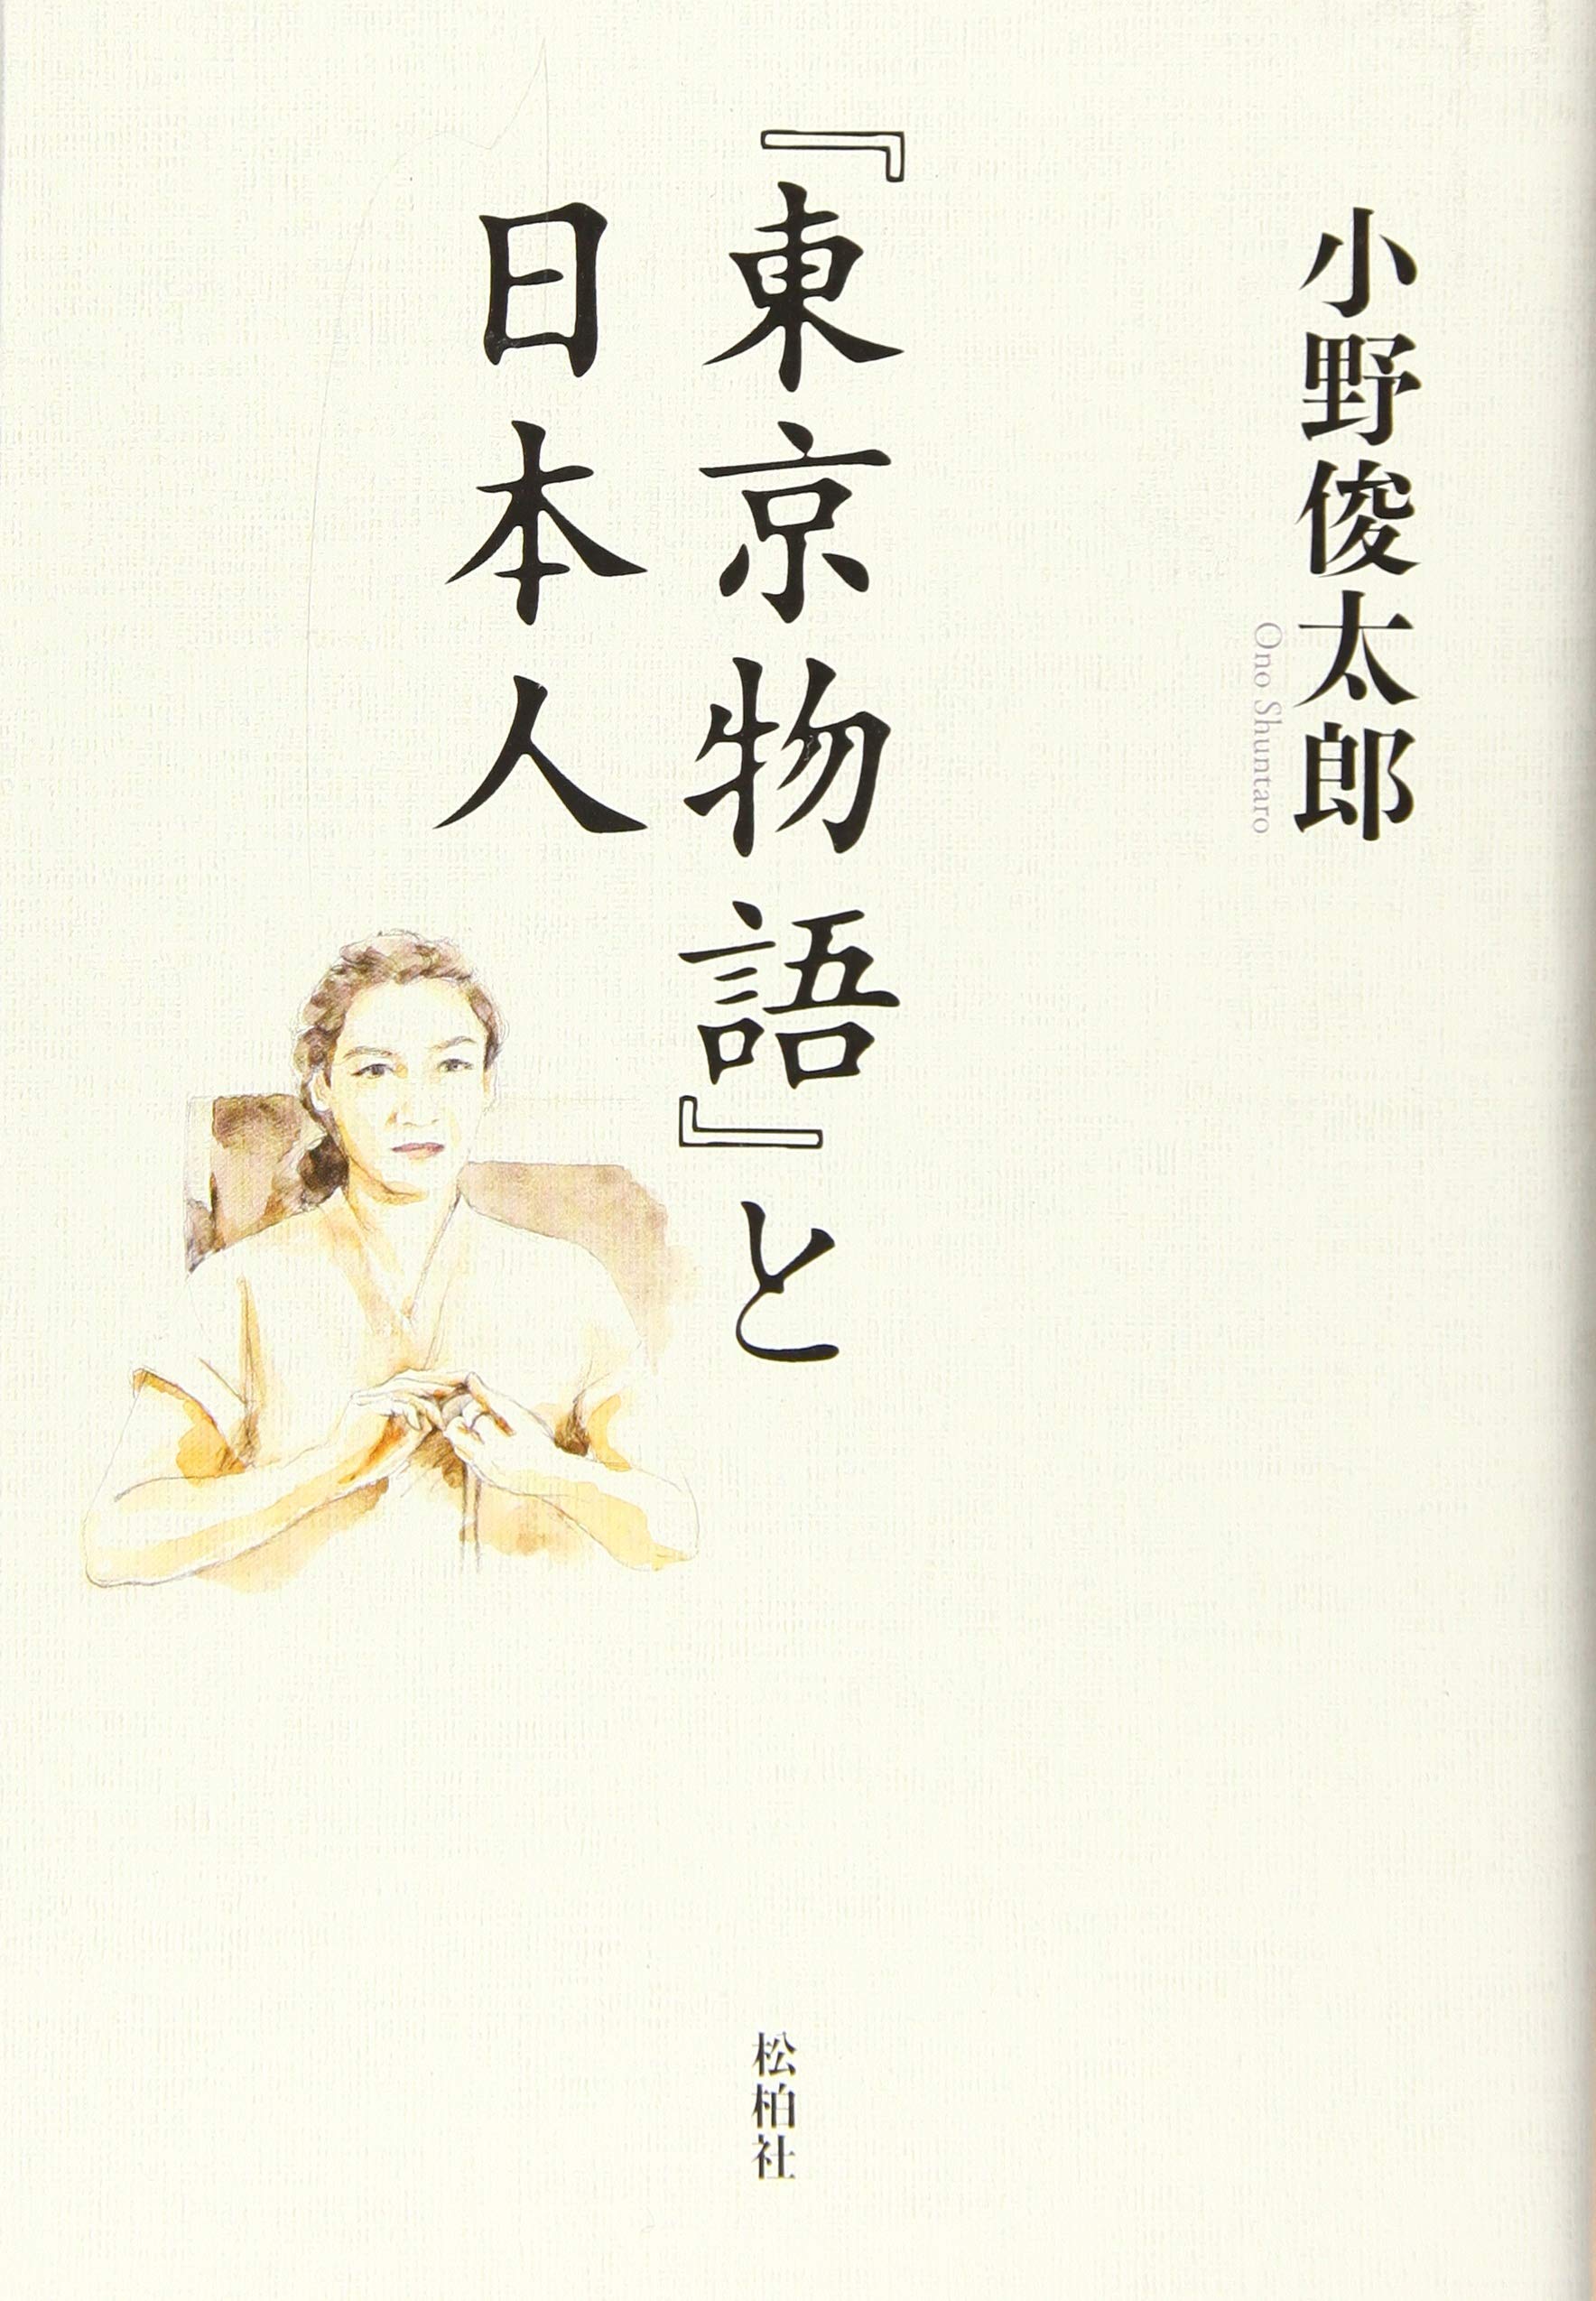 小野俊太郎
Ono Shuntaro
『東京物語』と
日本人
松柏社